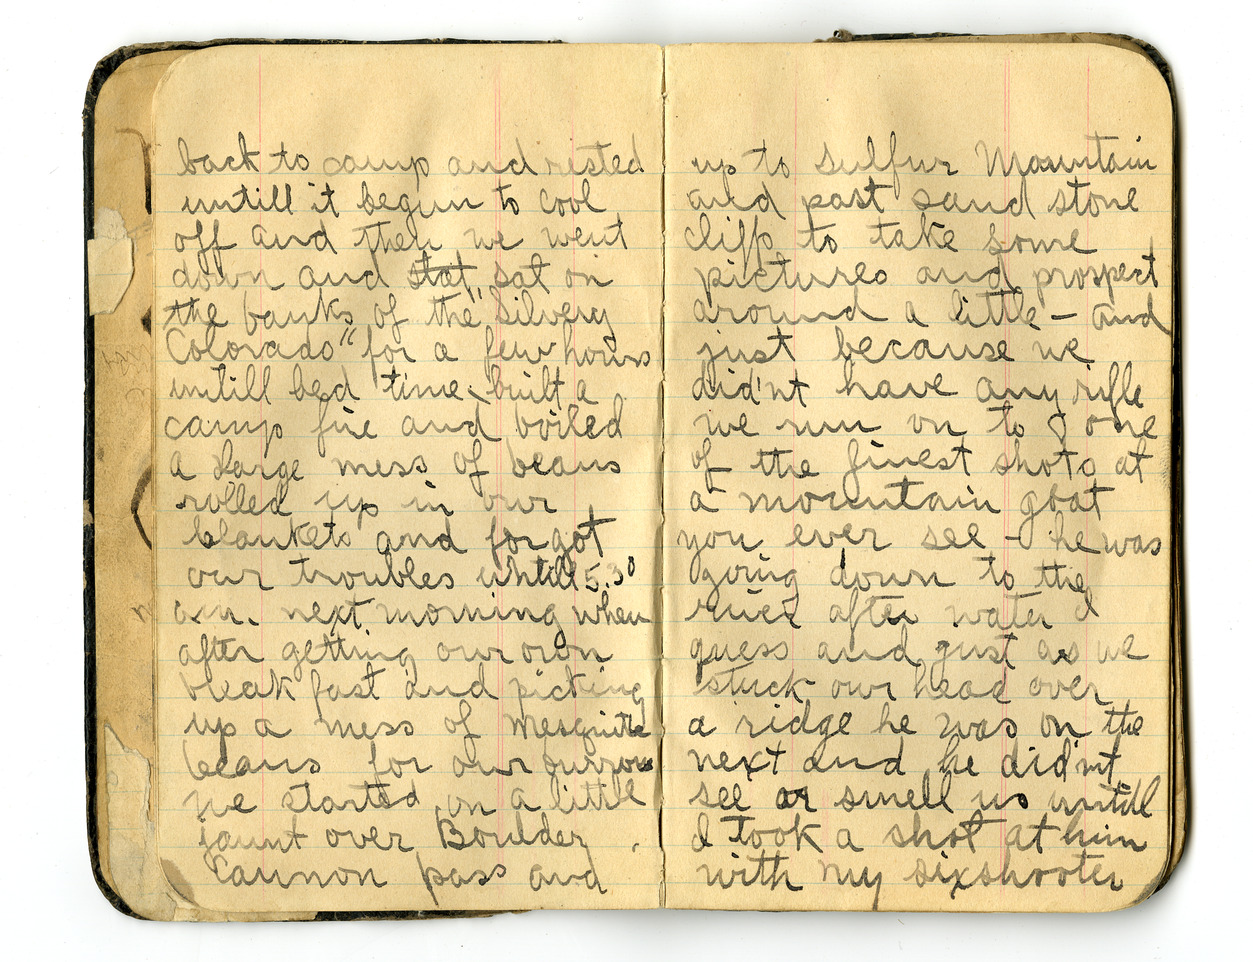 back to camp and rested
untill it begun to cool
off and then we went
down and stat sat on
the banks of the "Silvery
Colorado" for a few hours
untill bed time, built a
camp fire and boiled
a large mess of beans
rolled up in our
blankets and forgot
our troubles untill 5.30
a.m. next morning when
after getting our own
break fast and picking
up a mess of mesquite
beans for our burros
we started on a little
jaunt over Boulder
Cannon pass and
up to Sulfur Mountain
and past sand stone
cliffs to take some
pictures and prospect
around a little - and
just because we
did'nt have any rifle
we run on to one
of the finest shots at
a mountain goat
you ever see - he was
going down to the
river after water I
guess and just as we
stuck our head over
a ridge he was on the
next and he did'nt
see or smell us untill
I took a shot at him
with my sixshooter